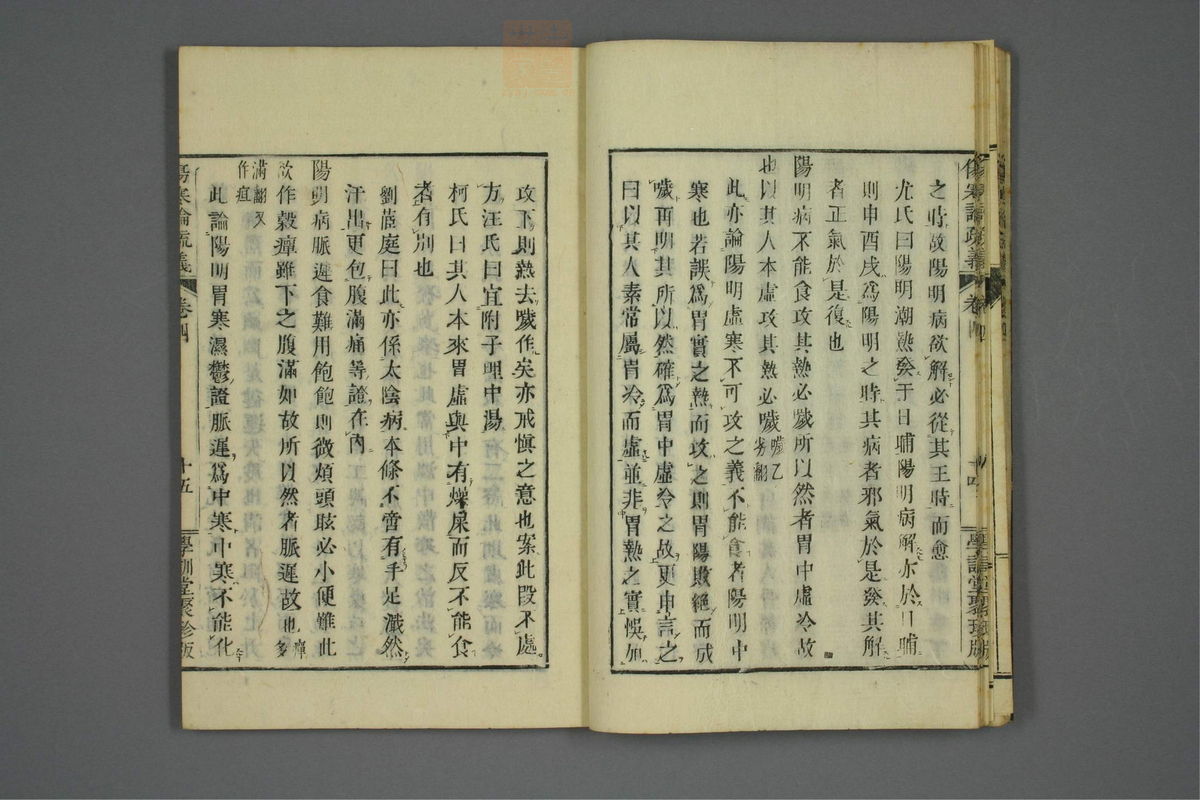 傷寒論疏義 卷四 十四 學訓堂聚珍版
之時故陽明病欲解必從其王時而愈
尤氏曰陽明潮熱發于日晡陽明病解亦於日晡
則申酉戌爲陽明之時其病者邪氣於是發其解
者正氣於是復也
陽明病不能食攻其熱必噦所以然者胃中虛冷故
也以其人本虛攻其熱必噦
噦乙
劣翻
此亦論陽明虛寒不可攻之義不能食者陽明中
寒也若誤爲胃實之熱而攻之則胃陽敗絕而成
噦再明其所以然確爲胃中虛冷之故更申言之
曰以其人素常屬胃冷而虛並非胃熱之實悞加
攻下則熱去噦作矣亦戒愼之意也案此段不處
方汪氏曰宜附子理中湯
柯氏曰其人本來胃虛與中有燥屎而反不能食
者有別也
劉茝庭曰此亦係太陰病本條不啻有手足濈然
汗出更包腹滿痛等證在內
陽明病脈遲食難用飽飽則微煩頭眩必小便難此
欲作穀癉雖下之腹滿如故所以然者脈遲故也
癉多
滿翻又
作疸
此論陽明胃寒濕鬱證脈遲爲中寒中寒不能化
傷寒論疏義 卷四 十五 學訓堂聚珍版